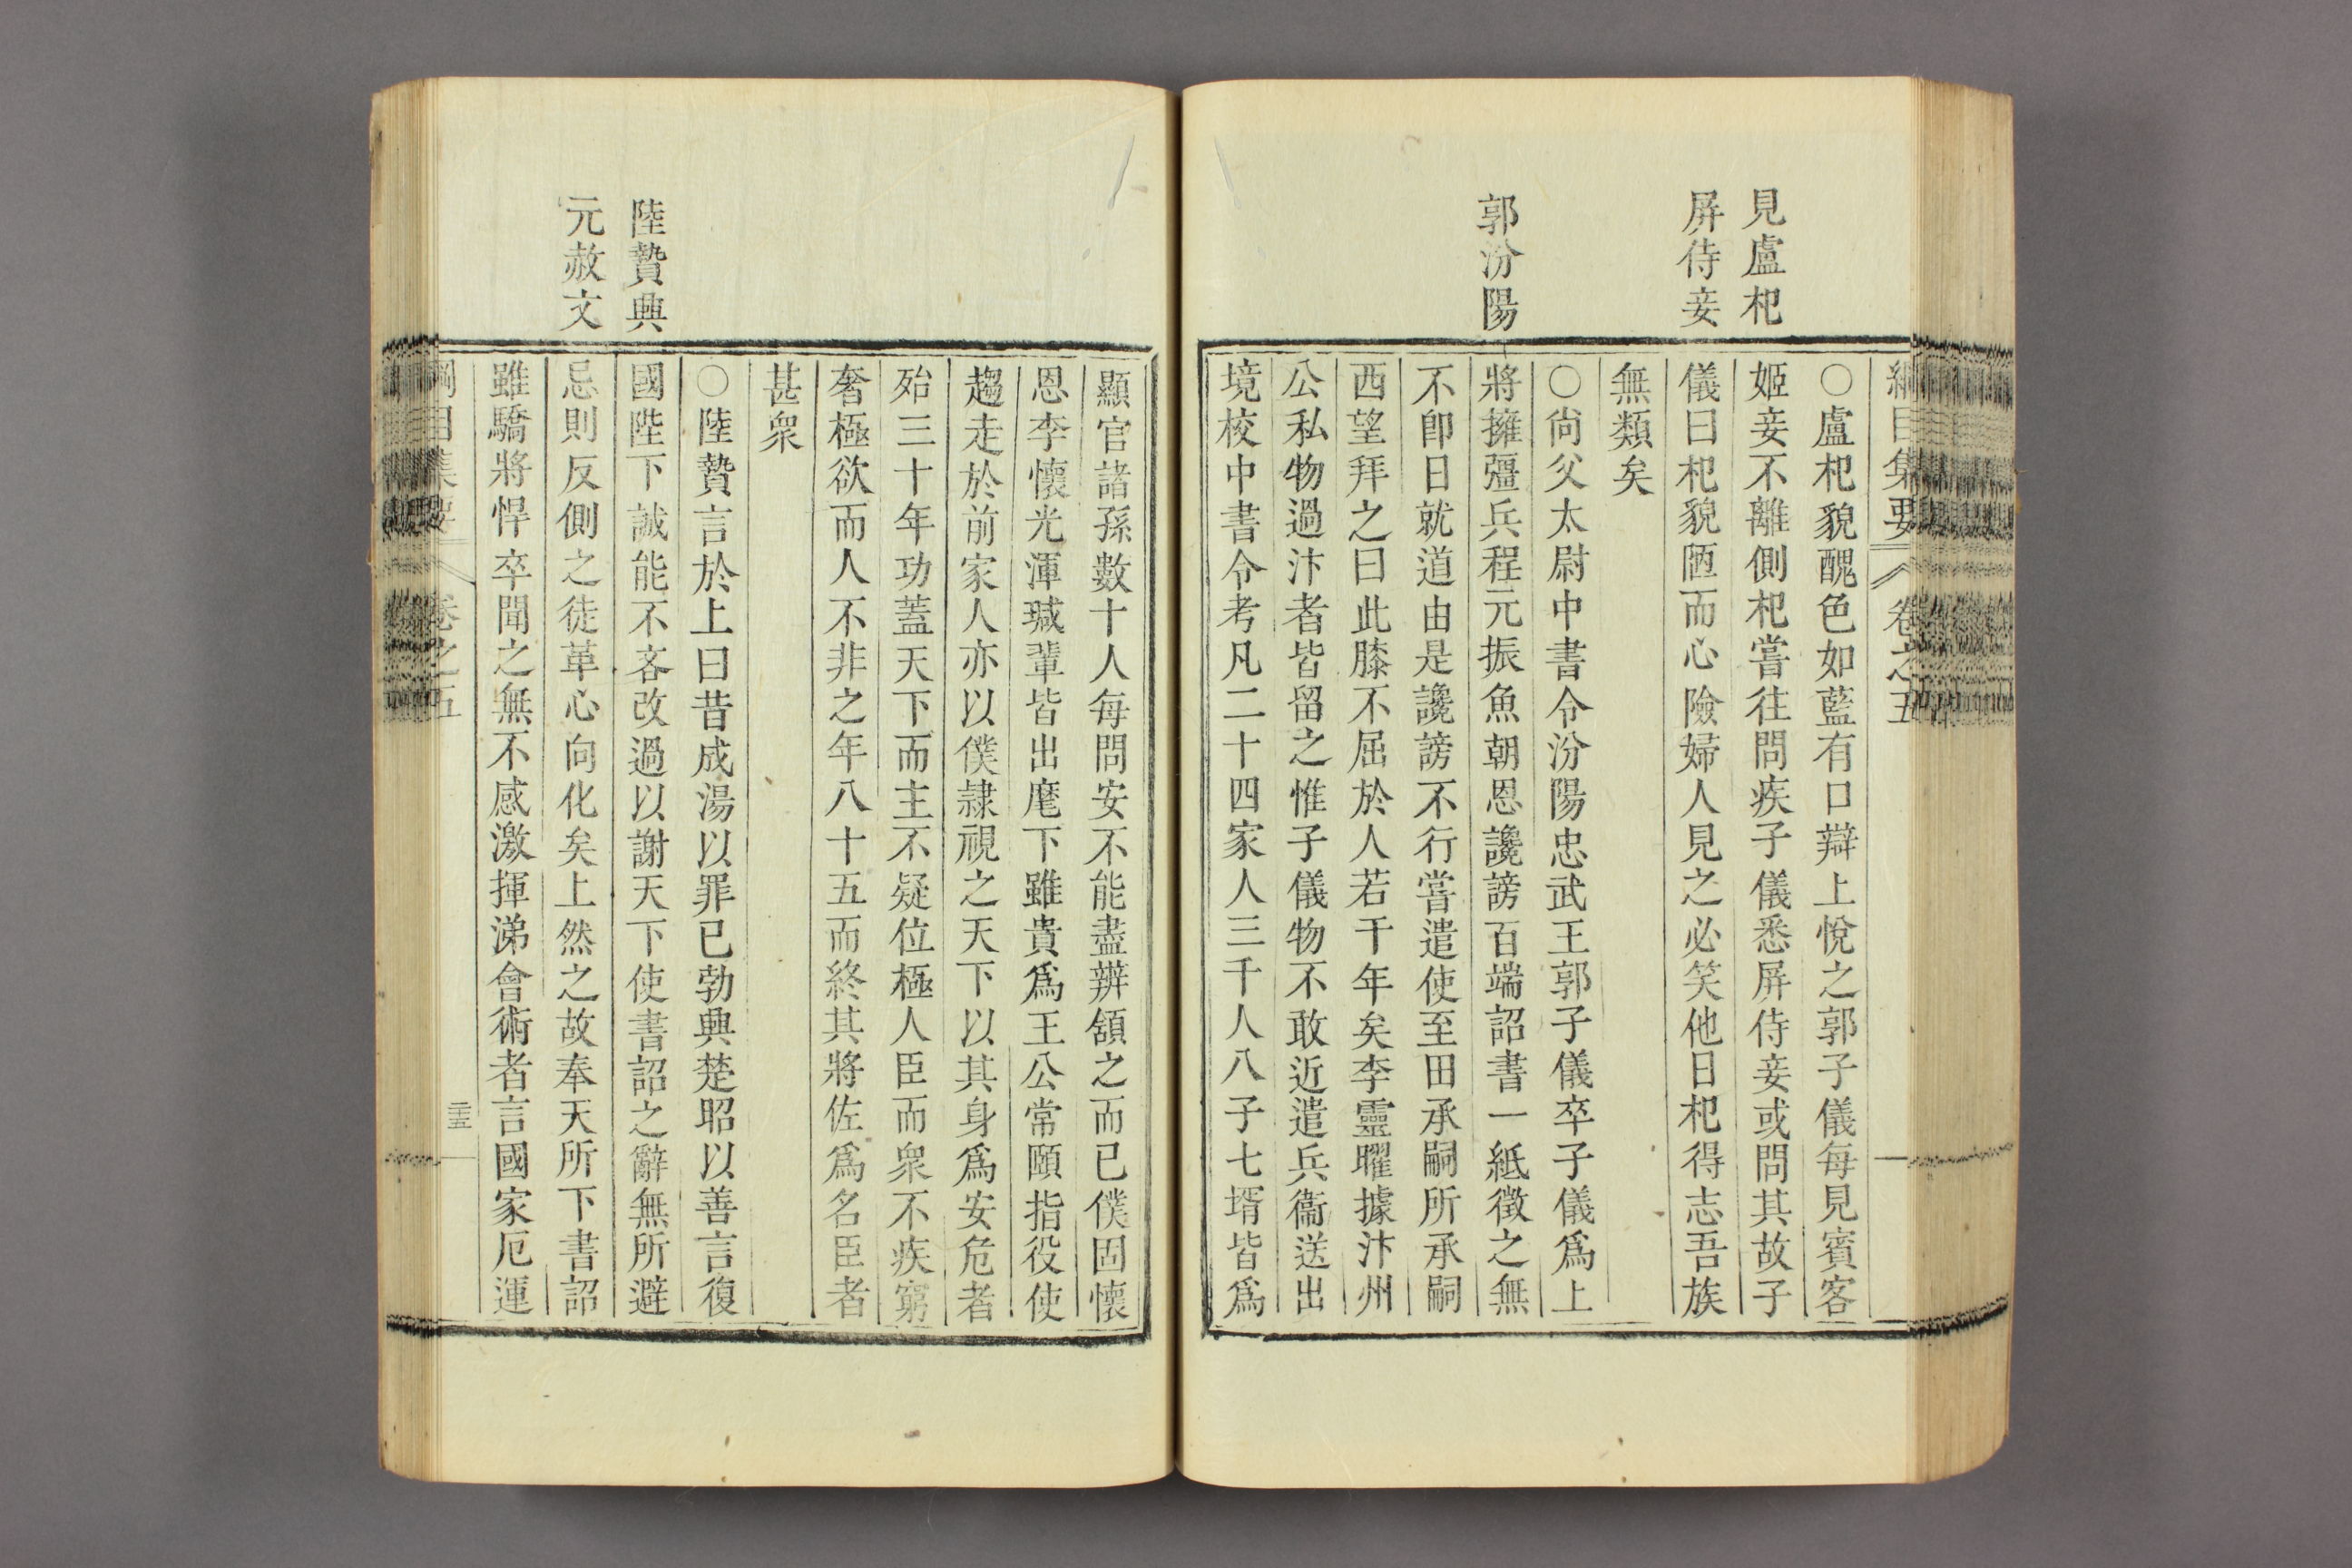 綱目集要
卷之五
見盧杞
屏侍妾
郭汾陽
○盧杞貌醜色如藍有口辯上悅之郭子儀每見賓客
姬妾不離側杞嘗往問疾子儀悉屏侍妾或問其故子
儀曰杞貌陋而心險婦人見之必笑他日杞得志吾族
無類矣
○尙父太尉中書令汾陽忠武王郭子儀卒子儀爲上
將擁彊兵程元振魚朝恩讒謗百端詔書一紙徵之無
不卽日就道由是讒謗不行嘗遣使至田承嗣所承嗣
西望拜之曰此膝不屈於人若干年矣李靈曜據汴州
公私物過汴者皆留之惟子儀物不敢近遣兵衞送出
境校中書令考凡二十四家人三千人八子七壻皆爲
陸贄興
元赦文
顯官諸孫數十人每問安不能盡辨頷之而已僕固懷
恩李懷光渾瑊輩皆出麾下雖貴爲王公常頤指役使
趨走於前家人亦以僕隷視之天下以其身爲安危者
殆三十年功蓋天下而主不疑位極人臣而衆不疾窮
奢極欲而人不非之年八十五而終其將佐爲名臣者
甚衆
○陸贄言於上曰昔成湯以罪已勃興楚昭以善言復
國陛下誠能不吝改過以謝天下使書詔之辭無所避
忌則反側之徒革心向化矣上然之故奉天所下書詔
雖驕將悍卒聞之無不感激揮涕會術者言國家厄運
綱目集要
卷之五
二十五